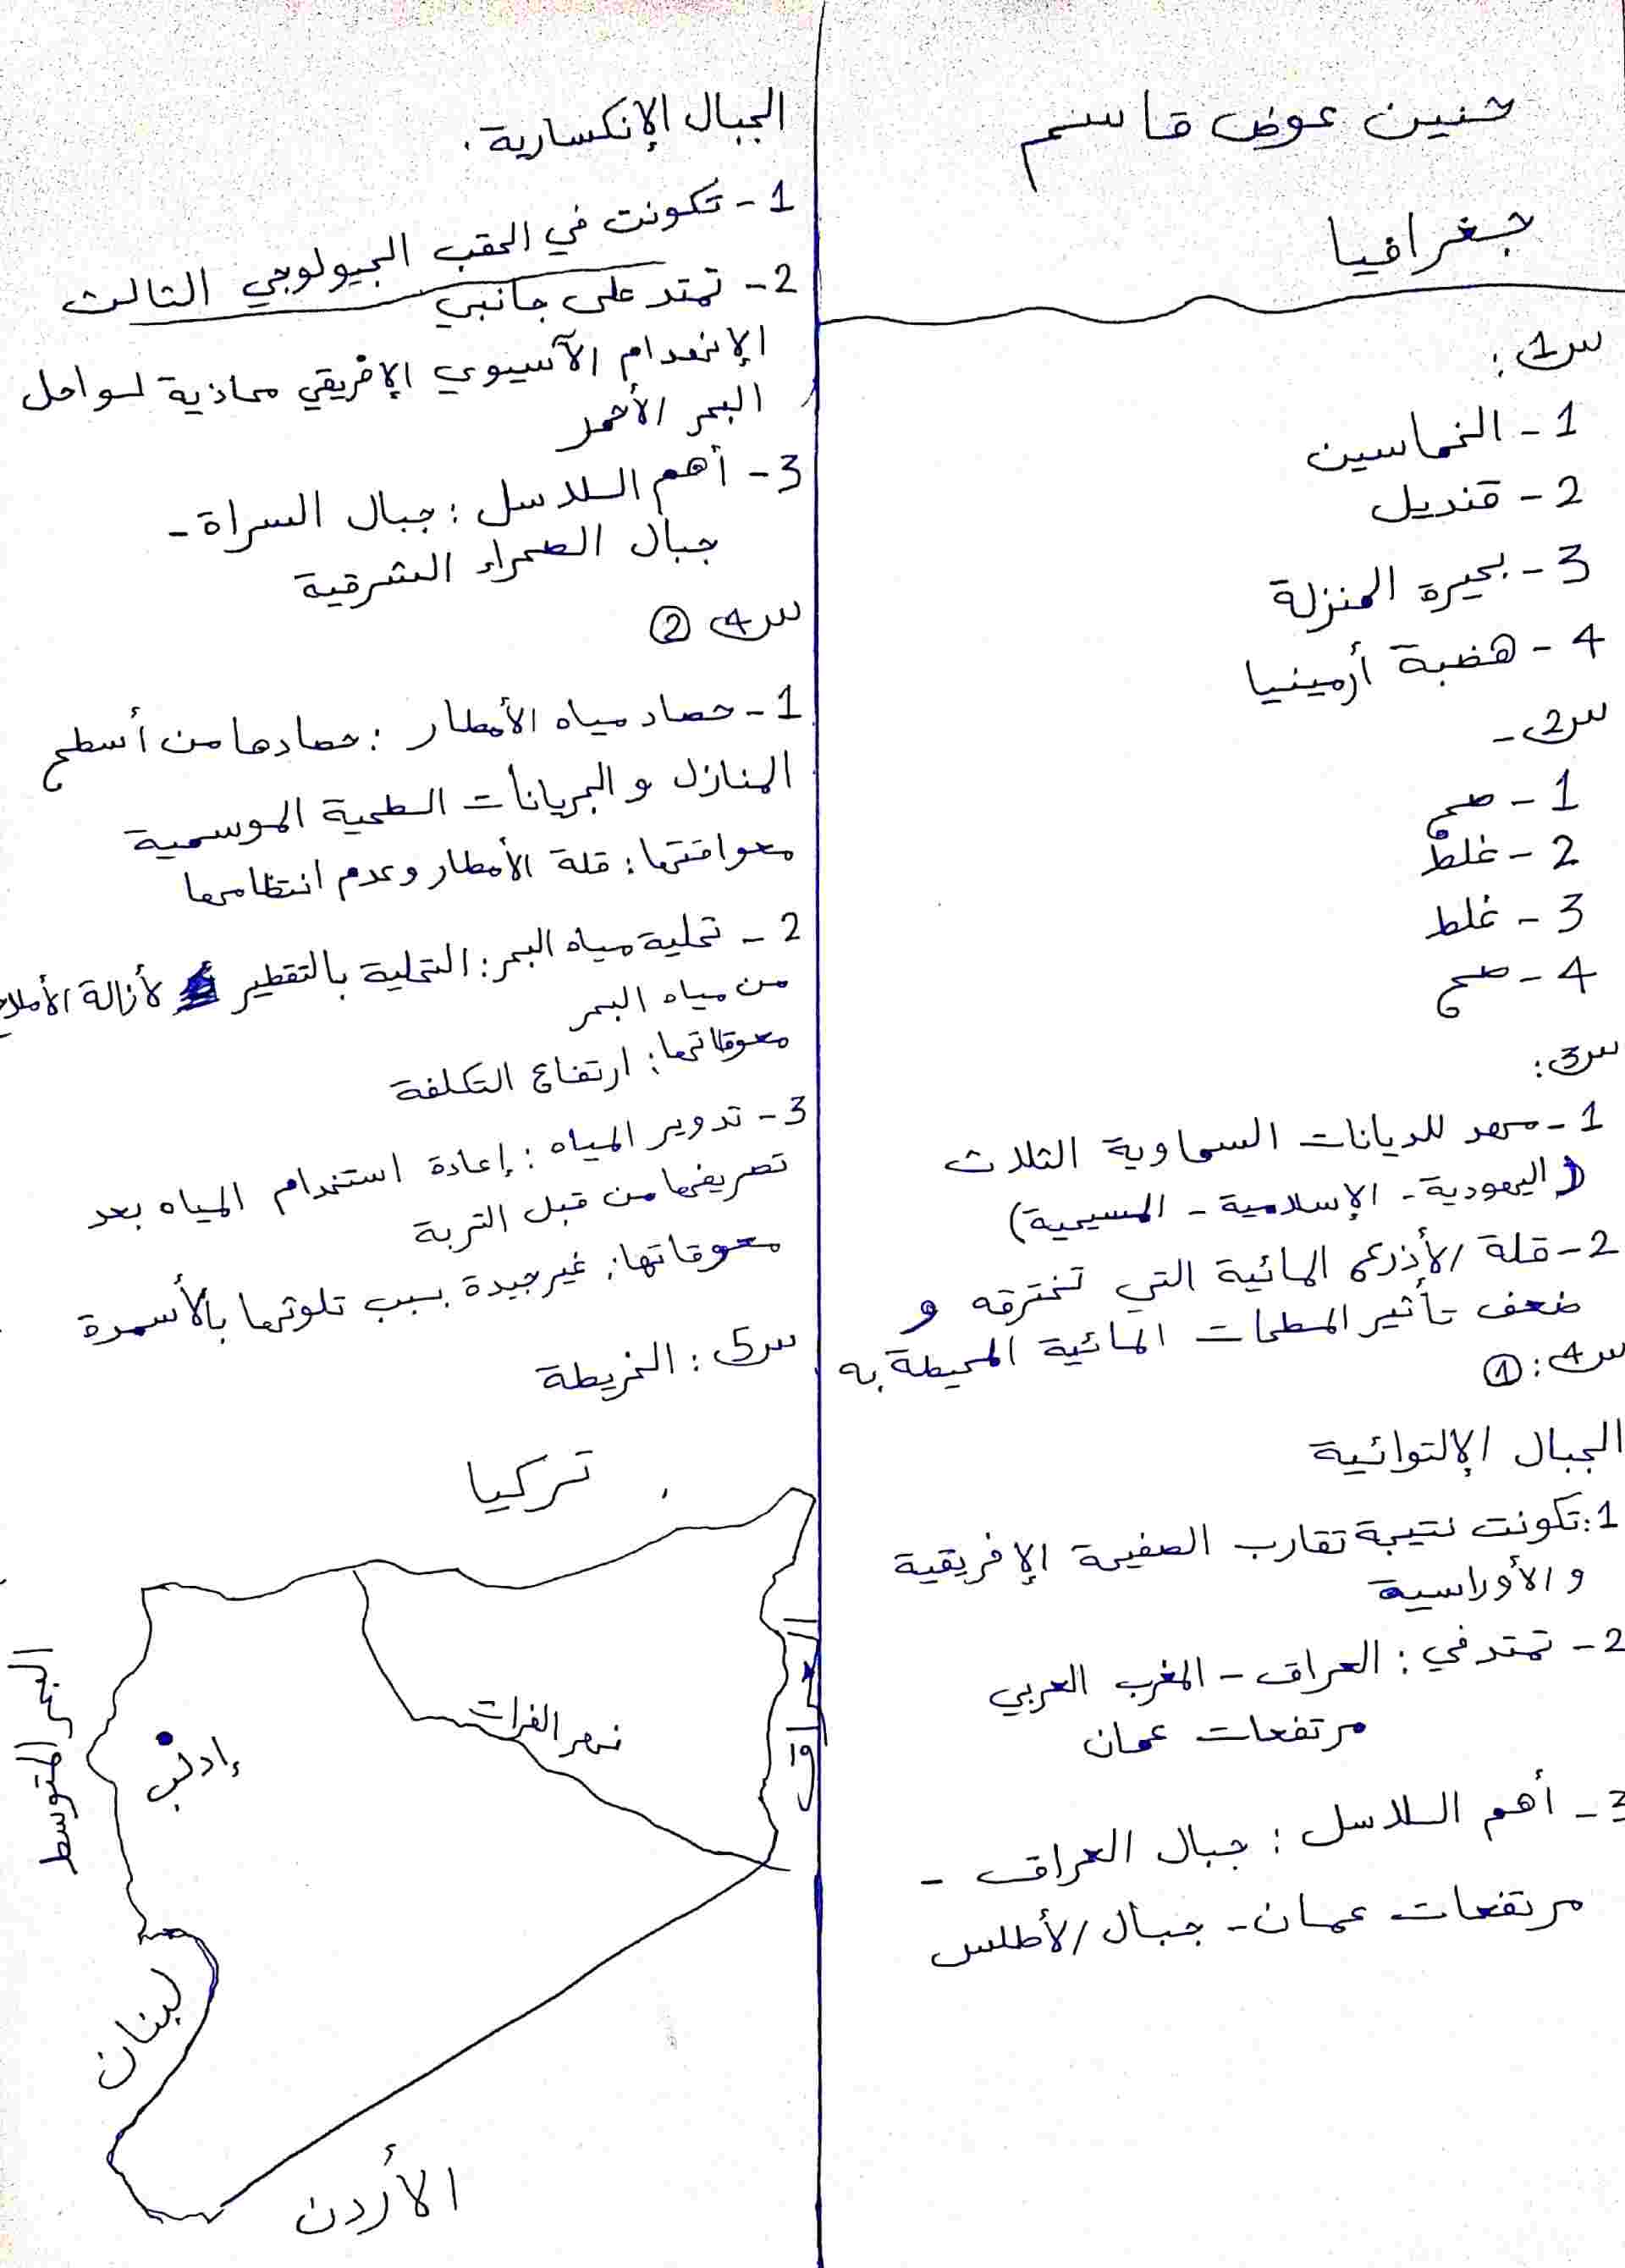 حنين عوض قاسم
جغرافيا
س1:
1 - الخماسين
2 - قنديل
3 - بحيرة المنزلة
4 - هضبة أرمينيا
س2 -
1 - صح
2 - غلط
3 - غلط
4 - صح
س3:
1 - مهد للديانات السماوية الثلاث
(اليهودية - الإسلامية - المسيحية)
2 - قلة الأذرع المائية التي تخترقه و
ضعف تأثير المسطحات المائية المحيطة به
س4: ①
الجبال الإلتوائية
1: تكونت نتيجة تقارب الصفيحة الإفريقية
و الأوراسية
2 - تمتد في: العراق - المغرب العربي
مرتفعات عمان
3 - أهم السلاسل: جبال العراق -
مرتفعات عمان - جبال الأطلس
الجبال الإنكسارية.
1 - تكونت في الحقب الجيولوجي الثالث
2 - تمتد على جانبي
الإنهدام الآسيوي الإفريقي محاذية لسواحل
البحر الأحمر
3 - أهم السلاسل: جبال السراة -
جبال الصحراء الشرقية
س4 ②
1 - حصاد مياه الأمطار: حصادها من أسطح
المنازل و الجريانات السطحية الموسمية
معواقتها: قلة الأمطار وعدم انتظامها
2 - تحلية مياه البحر: التحلية بالتقطير لأزالة الأملاح
من مياه البحر
معوقاتها: ارتفاع التكلفة
3 - تدوير المياه: إعادة استخدام المياه بعد
تصريفها من قبل التربة
معوقاتها: غير جيدة بسبب تلوثها بالأسمدة
س5: الخريطة
تركيا
البحر المتوسط
إدلب
نهر الفرات
العراق
لبنان
الأردن